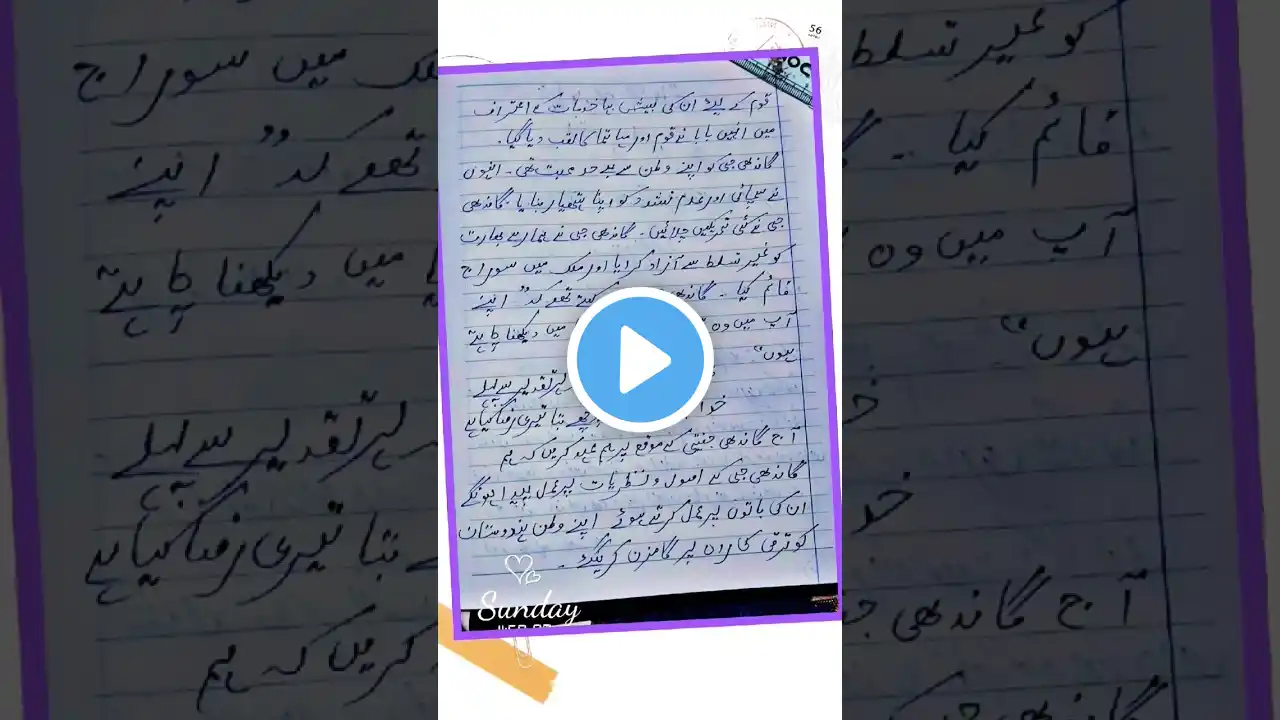 56
قوم کے لیے ان کی بیش بہا خدمات کے اعتراف
میں انہیں بابائے قوم اور مہاتما کا لقب دیا گیا۔
گاندھی جی کو اپنے وطن سے بے حد محبت تھی۔ انہوں
نے سچائی اور عدم تشدد کو اپنا ہتھیار بنایا۔ گاندھی
جی نے کئی تحریکیں چلائیں۔ گاندھی جی نے ہمارے بھارت
کو غیر تسلط سے آزاد کرایا اور ملک میں سوراج
قائم کیا۔ گاندھی کہتے تھے کہ "اپنے
آپ میں وہ میں دیکھنا چاہتے
ہوں"
ہر تقدیر سے پہلے
خدا بتا تیری رضا کیا ہے
آج گاندھی جینتی کے موقع پر ہم عہد کریں کہ ہم
گاندھی جی کے اصول و نظریات پر عمل پیرا ہونگے
ان کی باتوں پر عمل کرتے ہوئے اپنے وطن ہندوستان
کو ترقی کا راہ پر گامزن کرینگے۔
Sunday